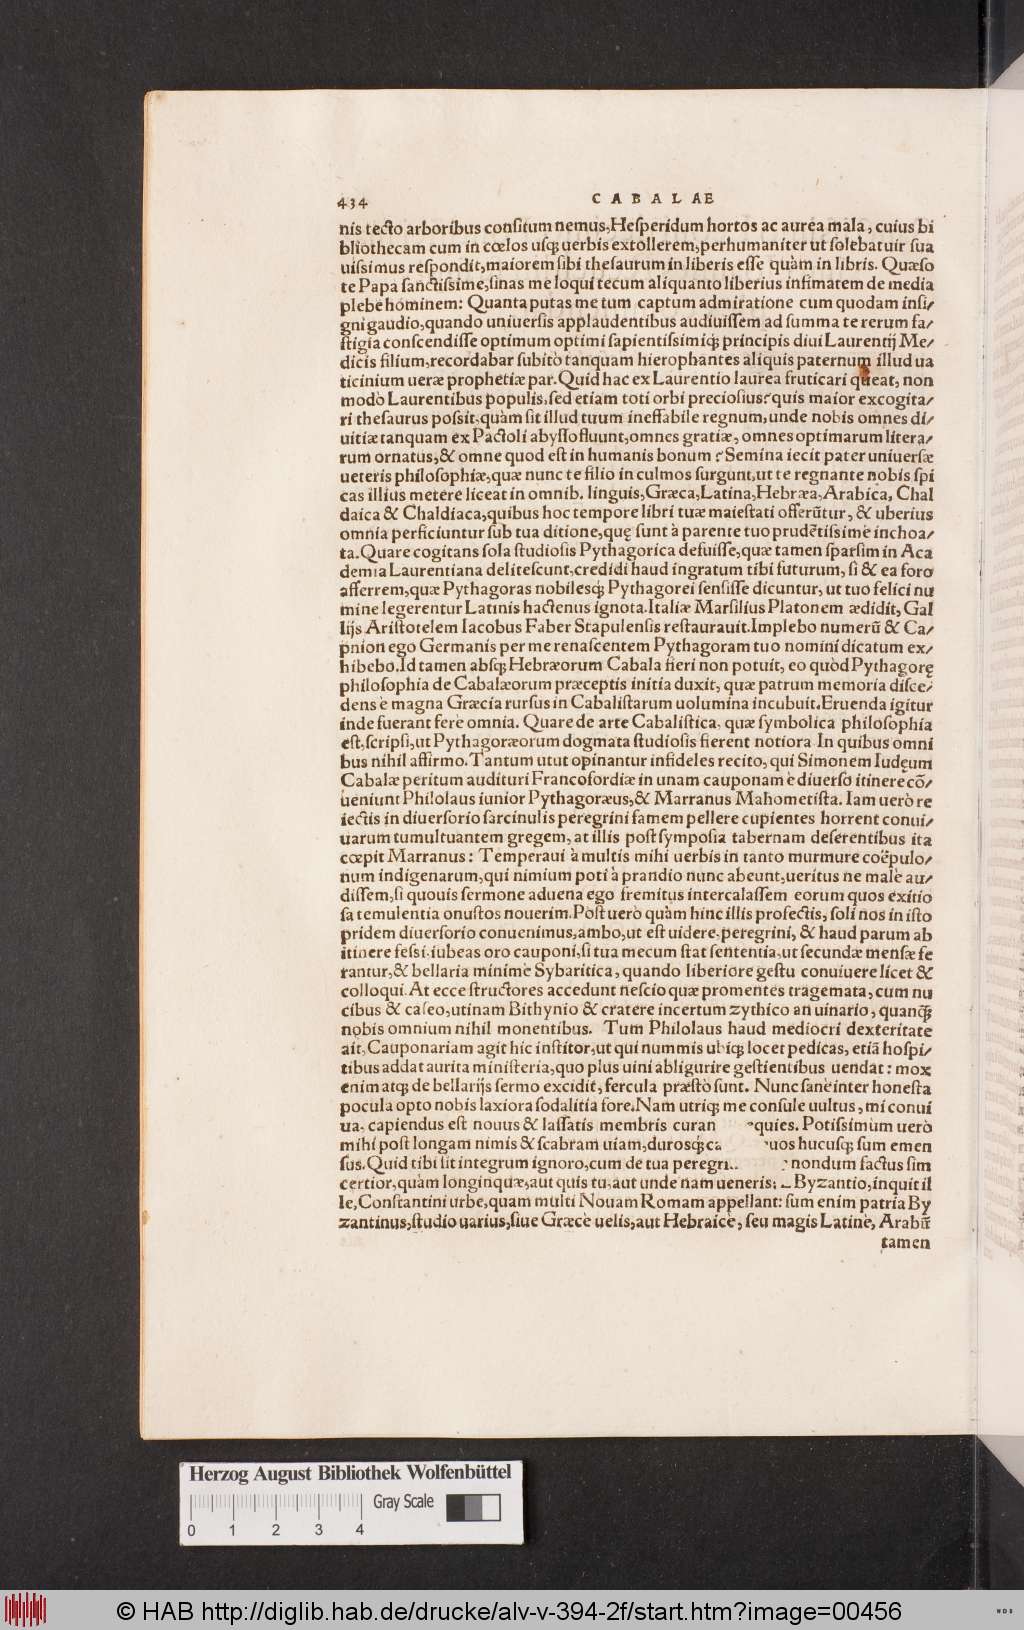 434
CABALAE
nis tecto arboribus consitum nemus, Hesperidum hortos ac aurea mala, cuius bi
bliothecam cum in cœlos usq; uerbis extollerem, perhumaniter ut solebatuir sua
uissimus respondit, maiorem sibi thesaurum in liberis esse quàm in libris. Quæso
te Papa sanctissime, sinas me loqui tecum aliquanto liberius infimatem de media
plebe hominem: Quanta putas me tum captum admiratione cum quodam insi/
gni gaudio, quando uniuersis applaudentibus audiuissem ad summa te rerum fa/
stigia conscendisse optimum optimi sapientissimiq; principis diui Laurentij Me/
dicis filium, recordabar subitò tanquam hierophantes aliquis paternum illud ua
ticinium ueræ prophetiæ par. Quid hac ex Laurentio laurea fruticari queat, non
modò Laurentibus populis, sed etiam toti orbi preciosius? quis maior excogita/
ri thesaurus possit, quàm sit illud tuum ineffabile regnum, unde nobis omnes di/
uitiæ tanquam ex Pactoli abysso fluunt, omnes gratiæ, omnes optimarum litera/
rum ornatus, & omne quod est in humanis bonum? Semina iecit pater uniuersæ
ueteris philosophiæ, quæ nunc te filio in culmos surgunt, ut te regnante nobis spi
cas illius metere liceat in omnib. linguis, Græca, Latina, Hebræa, Arabica, Chal
daica & Chaldiaca, quibus hoc tempore libri tuæ maiestati offerūtur, & uberius
omnia perficiuntur sub tua ditione, quę sunt à parente tuo prudētissimè inchoa/
ta. Quare cogitans sola studiosis Pythagorica defuisse, quæ tamen sparsim in Aca
demia Laurentiana delitescunt, credidi haud ingratum tibi futurum, si & ea foro
afferrem, quæ Pythagoras nobilesq; Pythagorei sensisse dicuntur, ut tuo felici nu
mine legerentur Latinis hactenus ignota. Italiæ Marsilius Platonem ædidit, Gal
lijs Aristotelem Iacobus Faber Stapulensis restaurauit. Implebo numerū & Ca/
pnion ego Germanis per me renascentem Pythagoram tuo nomini dicatum ex/
hibebo. Id tamen absq; Hebræorum Cabala fieri non potuit, eo quòd Pythagorę
philosophia de Cabalæorum præceptis initia duxit, quæ patrum memoria disce/
dens è magna Græcia rursus in Cabalistarum uolumina incubuit. Eruenda igitur
inde fuerant ferè omnia. Quare de arte Cabalistica, quæ symbolica philosophia
est, scripsi, ut Pythagoræorum dogmata studiosis fierent notiora In quibus omni
bus nihil affirmo. Tantum utut opinantur infideles recito, qui Simonem Iudęum
Cabalæ peritum audituri Francofordiæ in unam cauponam è diuerso itinere cō/
ueniunt Philolaus iunior Pythagoræus, & Marranus Mahometista. Iam uerò re
iectis in diuersorio sarcinulis peregrini famem pellere cupientes horrent conui/
uarum tumultuantem gregem, at illis post symposia tabernam deserentibus ita
cœpit Marranus: Temperaui à multis mihi uerbis in tanto murmure coëpulo/
num indigenarum, qui nimium poti à prandio nunc abeunt, ueritus ne malè au/
dissem, si quouis sermone aduena ego fremitus intercalassem eorum quos exitio
sa temulentia onustos nouerim. Post uerò quàm hinc illis profectis, soli nos in isto
pridem diuersorio conuenimus, ambo, ut est uidere, peregrini, & haud parum ab
itinere fessi, iubeas oro cauponi, si tua mecum stat sententia, ut secundæ mensæ fe
rantur, & bellaria minimè Sybaritica, quando liberiore gestu conuiuere licet &
colloqui. At ecce structores accedunt nescio quæ promentes tragemata, cum nu
cibus & caseo, utinam Bithynio & cratere incertum zythico an uinario, quanq̄;
nobis omnium nihil monentibus. Tum Philolaus haud mediocri dexteritate
ait, Cauponariam agit hic institor, ut qui nummis ubiq; locet pedicas, etiā hospi/
tibus addat aurita ministeria, quo plus uini abligurire gestientibus uendat: mox
enim atq; de bellarijs sermo excidit, fercula præstò sunt. Nunc sanè inter honesta
pocula opto nobis laxiora sodalitia fore. Nam utriq; me consule uultus, mi conui
ua, capiendus est nouus & lassatis membris curan equies. Potissimùm uerò
mihi post longam nimis & scabram uiam, durosq; ca uos hucusq; sum emen
sus. Quid tibi sit integrum ignoro, cum de tua peregri nondum factus sim
certior, quàm longinquæ, aut quis tu, aut unde nam ueneris: Byzantio, inquit il
le, Constantini urbe, quam multi Nouam Romam appellant: sum enim patria By
zantinus, studio uarius, siue Græcè uelis, aut Hebraicè, seu magis Latinè, Arabū
tamen
Herzog August Bibliothek Wolfenbüttel
Gray Scale
0 1 2 3 4
© HAB http://diglib.hab.de/drucke/alv-v-394-2f/start.htm?image=00456